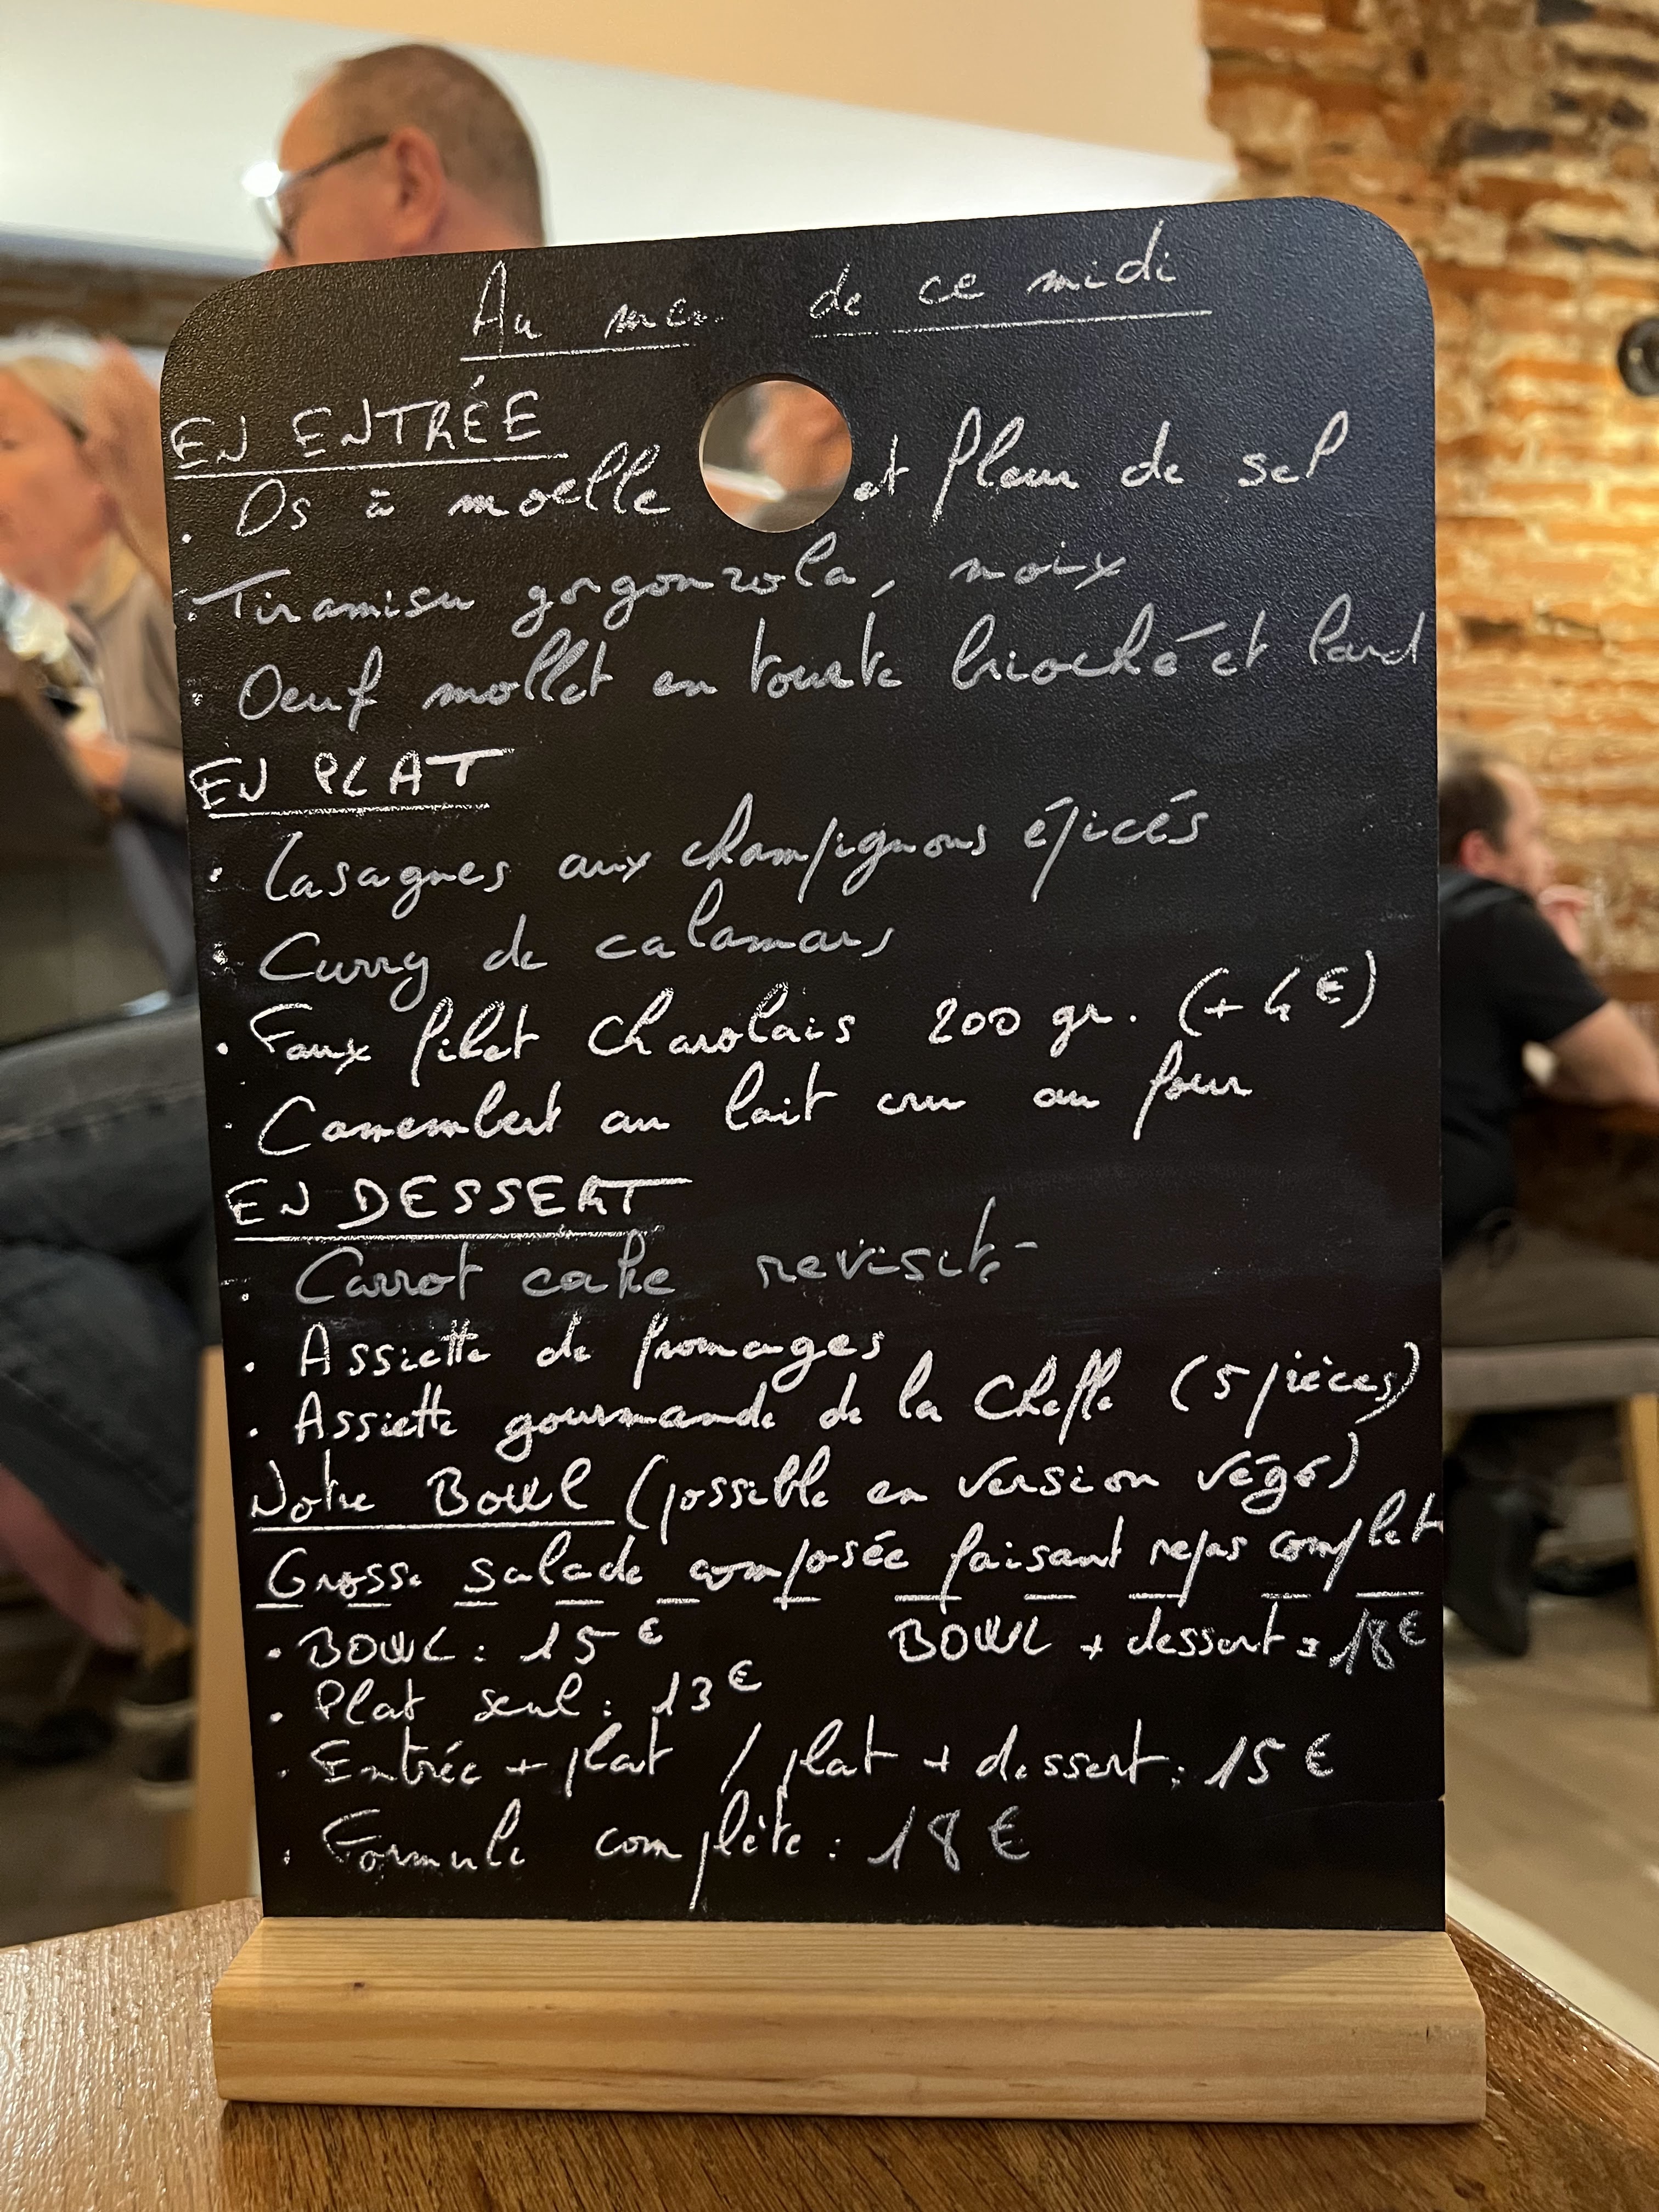 Au menu de ce midi
EN ENTRÉE
. Os à moelle et fleur de sel
. Tiramisu gorgonzola, noix
. Oeuf mollet en tourte brioché et lard
EN PLAT
. Lasagnes aux champignons épicés
. Curry de calamars
. Faux filet charolais 200 gr. (+ 4 €)
. Camembert au lait cru au four
EN DESSERT
. Carrot cake revisité
. Assiette de fromages
. Assiette gourmande de la Cheffe (5 pièces)
Notre BOWL (possible en version végé)
Grosse salade composée faisant repas complet
. BOWL : 15 € BOWL + dessert = 18 €
. Plat seul : 13 €
. Entrée + plat / plat + dessert : 15 €
. Formule complète : 18 €